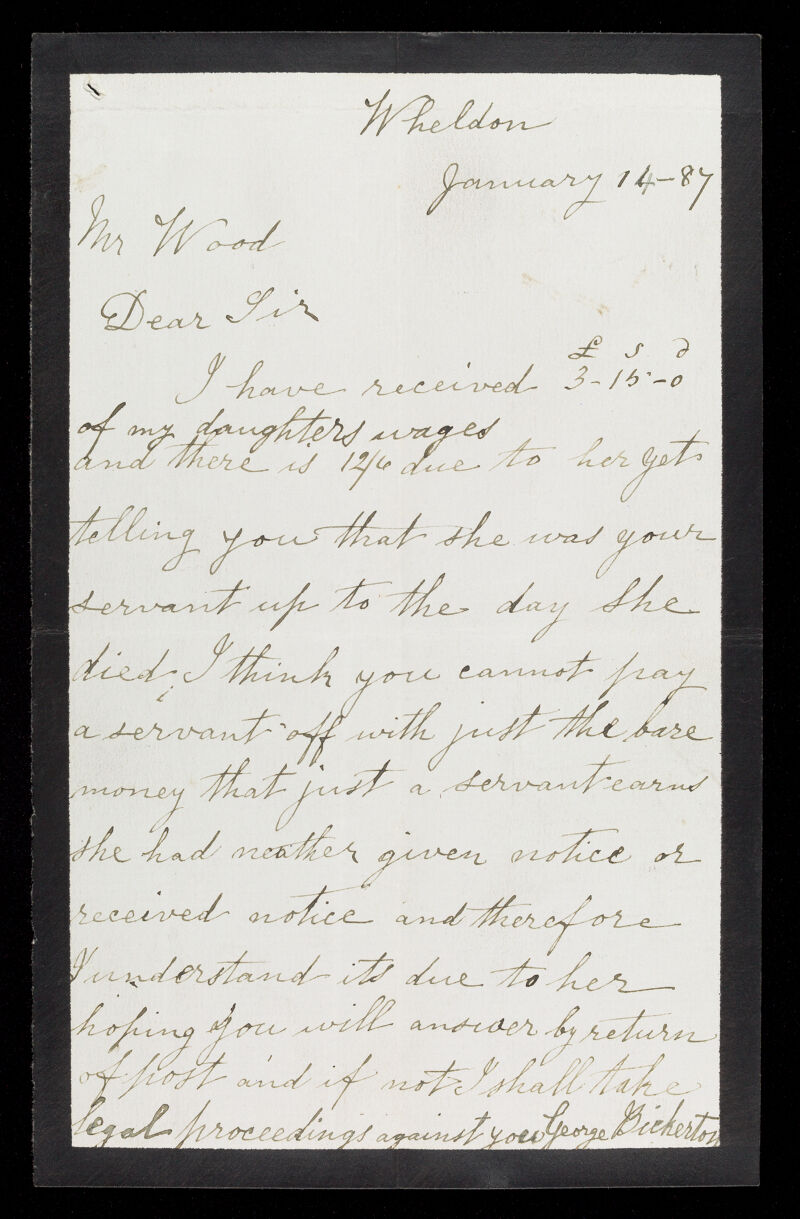 Wheldon
January 14-87
Mr Wood
Dear Sir
£ s d
I have received 3-15-0
of my daughters wages
and there is 12/6 due to her yet
telling you that she was your
servant up to the day she
died, I think you cannot pay
a servant off with just the bare
money that just a servant earns
she had neather given notice or
received notice and therefore
I understand its due to her
hoping you will answer by return
of post and if not I shall take
legal proceedings against you George Bickerton